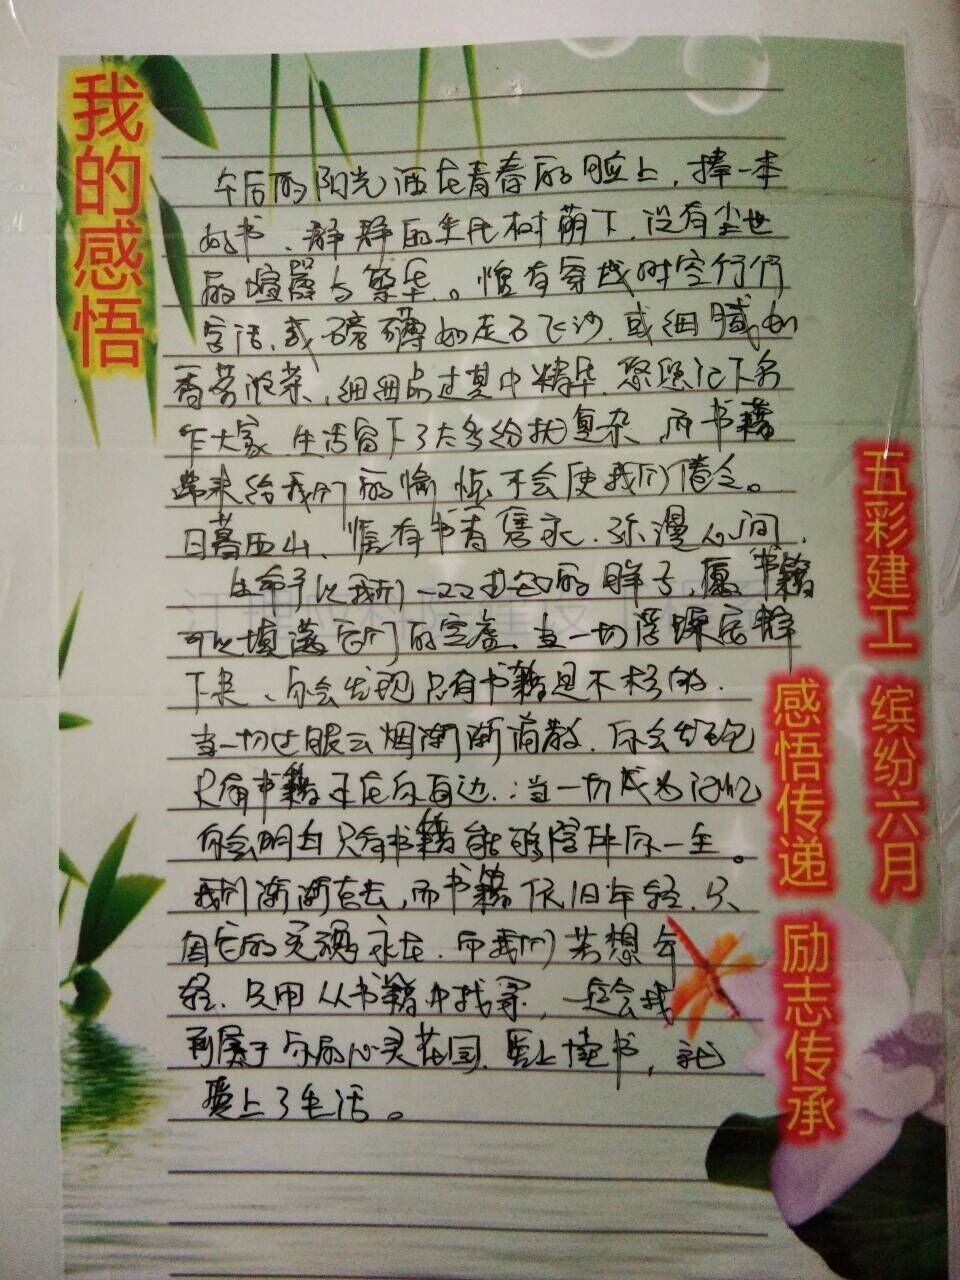 我的感悟
午后的阳光洒在青春的脸上，捧一本
好书、静静的坐在树荫下，没有尘世
的喧嚣与繁华。惟有穿越时空行行
字语，或磅礴如走石飞沙，或细腻如
香茗淡茶，细细品过其中精华，默默记下名
作大家，生活留下了太多纷扰复杂，而书籍
带来给我们的愉悦不会使我们倦怠。
日暮西山，惟有书香隽永，弥漫人间，
生命予以我们一双的眸子，愿书籍
可以填满它们的空虚，当一切浮躁安静
下来、你会发现只有书籍是不朽的．
当一切过眼云烟渐渐消散，你会发现
只有书籍还在你身边，当一切成为记忆
你会明白只有书籍能够陪伴你一生。
我们渐渐老去，而书籍依旧年轻，只
因它的灵魂永在，而我们若想年
轻，只用从书籍中找寻，一定会找
到属于你的心灵花园，爱上读书，就
爱上了生活。
五彩建工 缤纷六月
感悟传递 励志传承